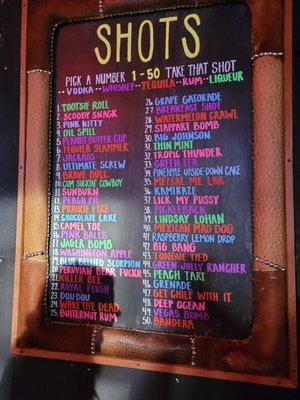 SHOTS
PICK A NUMBER 1-50 TAKE THAT SHOT
··VODKA··WHISKEY··TEQUILA··RUM··LIQUEUR
1. TOOTSIE ROLL
2. SCOOBY SNACK
3. PINK KITTY
4. OIL SPILL
5. PEANUT BUTTER CUP
6. TEQUILA SLAMMER
7. JACKASS
8. ULTIMATE SCREW
9. BRAVE BULL
10. CUM SUCKIN' COWBOY
11. SUNBURN
12. PEACH PIE
13. PRAIRIE FIRE
14. CHOCOLATE CAKE
15. CAMEL TOE
16. PINK BALLS
17. JAGER BOMB
18. WASHINGTON APPLE
19. BLUE BELLIED SCORPION
20. PERUVIAN BEAR FUCKR
21. KILLER BEE
22. ROYAL FLUSH
23. DOU DOU
24. WAKE THE DEAD
25. BUTTERNUT RUM
26. GRAPE GATORADE
27. BREAKFAST SHOT
28. WATERMELON CRAWL
29. STAPPART BOMB
30. BIG JOHNSON
31. THIN MINT
32. TROPIC THUNDER
33. GREEN TEA
34. PINEAPPLE UPSIDE-DOWN CAKE
35. MEZCAL ME LBR
36. KAMIKAZE
37. LICK MY PUSSY
38. PICKLEBACK
39. LINDSAY LOHAN
40. MEXICAN MAD DOG
41. RASPBERRY LEMON DROP
42. BIG BANG
43. TONGUE TIED
44. GREEN JOLLY RANCHER
45. PEACH TART
46. GRENADE
47. GET CHILE WITH IT
48. DEEP OCEAN
49. VEGAS BOMB
50. BANDERA